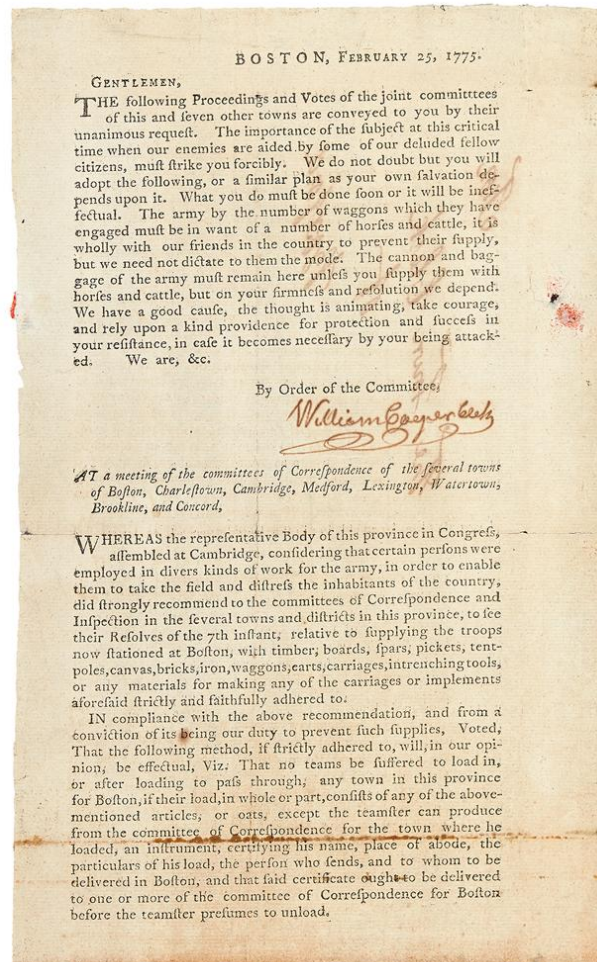 BOSTON, FEBRUARY 25, 1775.
GENTLEMEN,
THE following Proceedings and Votes of the joint committtees
of this and ſeven other towns are conveyed to you by their
unanimous requeſt. The importance of the ſubject at this critical
time when our enemies are aided by ſome of our deluded fellow
citizens, muſt ſtrike you forcibly. We do not doubt but you will
adopt the following, or a ſimilar plan as your own ſalvation de-
pends upon it. What you do muſt be done ſoon or it will be inef-
fectual. The army by the number of waggons which they have
engaged muſt be in want of a number of horſes and cattle, it is
wholly with our friends in the country to prevent their ſupply,
but we need not dictate to them the mode. The cannon and bag-
gage of the army muſt remain here unleſs you ſupply them with
horſes and cattle, but on your firmneſs and reſolution we depend.
We have a good cauſe, the thought is animating, take courage,
and rely upon a kind providence for protection and ſucceſs in
your reſiſtance, in caſe it becomes neceſſary by your being attack-
ed. We are, &c.
By Order of the Committee,
William Cooper Clerk
AT a meeting of the committees of Correſpondence of the ſeveral towns
of Boſton, Charleſtown, Cambridge, Medford, Lexington, Watertown,
Brookline, and Concord,
WHEREAS the repreſentative Body of this province in Congreſs,
aſſembled at Cambridge, conſidering that certain perſons were
employed in divers kinds of work for the army, in order to enable
them to take the field and diſtreſs the inhabitants of the country,
did ſtrongly recommend to the committees of Correſpondence and
Inſpection in the ſeveral towns and diſtricts in this province, to ſee
their Reſolves of the 7th inſtant, relative to ſupplying the troops
now ſtationed at Boſton, with timber, boards, ſpars, pickets, tent-
poles, canvas, bricks, iron, waggons, carts, carriages, intrenching tools,
or any materials for making any of the carriages or implements
aforeſaid ſtrictly and faithfully adhered to.
IN compliance with the above recommendation, and from a
conviction of its being our duty to prevent ſuch ſupplies, Voted,
That the following method, if ſtrictly adhered to, will, in our opi-
nion, be effectual, Viz. That no teams be ſuffered to load in,
or after loading to paſs through, any town in this province
for Boſton, if their load, in whole or part, conſiſts of any of the above-
mentioned articles, or oats, except the teamſter can produce
from the committee of Correſpondence for the town where he
loaded, an inſtrument, certifying his name, place of abode, the
particulars of his load, the perſon who ſends, and to whom to be
delivered in Boſton, and that ſaid certificate ought to be delivered
to one or more of the committee of Correſpondence for Boſton
before the teamſter preſumes to unload.